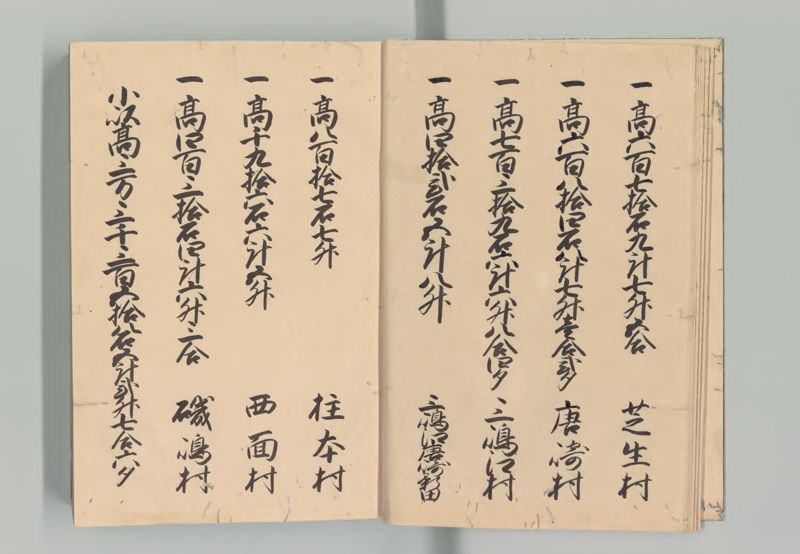 一高六百七拾石九斗七升五合 芝生村
一高六百八拾四石八斗七升壱合弐夕 唐崎村
一高七百三拾九石六斗六升八合四夕 三嶋江村
一高四拾弐石五斗八升 三嶋江唐崎新田
一高八百拾七石七升 柱本村
一高千九拾六石六斗五升 西面村
一高四百三拾石四斗六升三合 磯嶋村
小以高三万三千三百五拾八石五斗弐升七合六夕